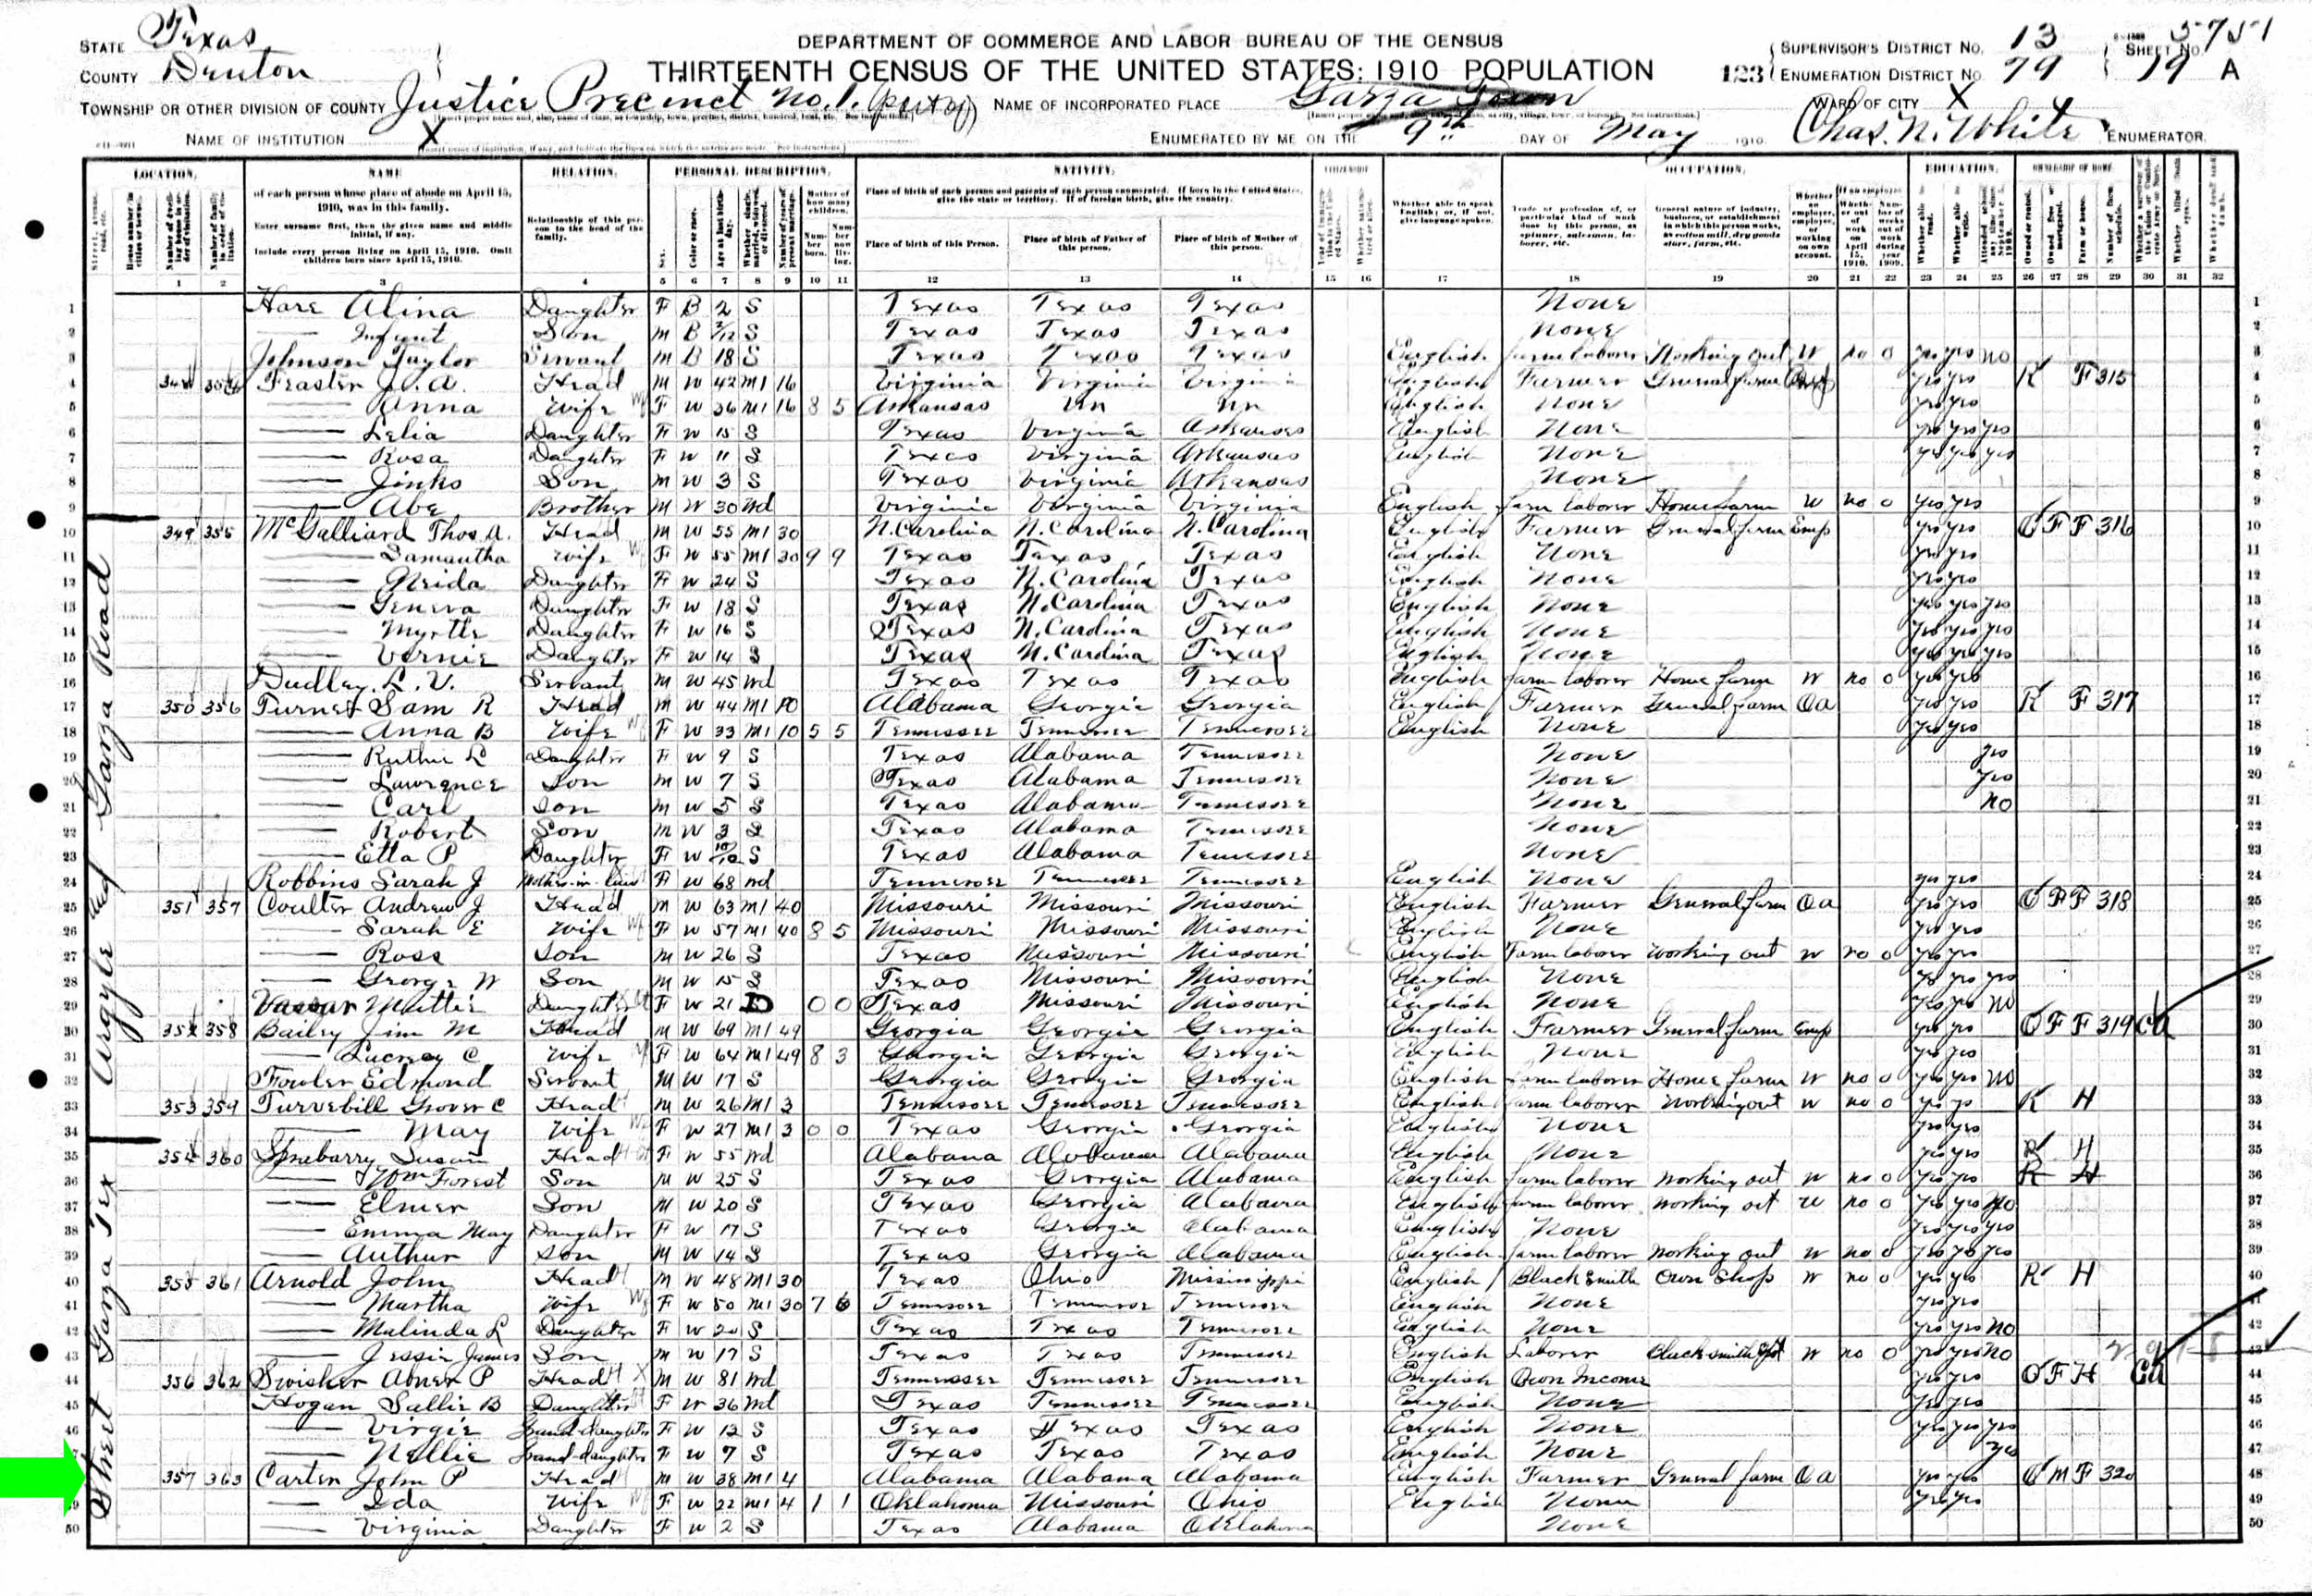 STATE Texas
COUNTY Denton
DEPARTMENT OF COMMERCE AND LABOR BUREAU OF THE CENSUS
THIRTEENTH CENSUS OF THE UNITED STATES: 1910 POPULATION
SUPERVISOR'S DISTRICT No. 13 SHEET No. 5751
123 ENUMERATION DISTRICT No. 79 19 A
TOWNSHIP OR OTHER DIVISION OF COUNTY Justice Precinct No. 1. (part of) NAME OF INCORPORATED PLACE Garza Town WARD OF CITY X
NAME OF INSTITUTION X ENUMERATED BY ME ON THE 9th DAY OF May 1910. Chas. N. White ENUMERATOR.
LOCATION. NAME RELATION. PERSONAL DESCRIPTION. NATIVITY. CITIZENSHIP OCCUPATION. EDUCATION. OWNERSHIP OF HOME.
of each person whose place of abode on April 15, 1910, was in this family.
Enter surname first, then the given name and middle initial, if any.
Include every person living on April 15, 1910. Omit children born since April 15, 1910.
Relationship of this person to the head of the family.
Place of birth of each person and parents of each person enumerated. If born in the United States, give the state or territory. If of foreign birth, give the country.
Place of birth of this Person. Place of birth of Father of this person. Place of birth of Mother of this person.
1 2 3 4 5 6 7 8 9 10 11 12 13 14 15 16 17 18 19 20 21 22 23 24 25 26 27 28 29 30 31 32
1 Hare Alina Daughter F B 2 S Texas Texas Texas None 1
2 Infant Son M B S Texas Texas Texas None 2
3 Johnson Taylor Servant M B 18 S Texas Texas Texas English farm laborer Working out W no 0 yes yes no 3
4 354 Feaster J. A. Head M W 42 M1 16 Virginia Virginia Virginia English Farmer General farm yes yes R F 315 4
5 Anna Wife F W 36 M1 16 8 5 Arkansas Un Un English None yes yes 5
6 Lelia Daughter F W 15 S Texas Virginia Arkansas English None yes yes yes 6
7 Rosa Daughter F W 11 S Texas Virginia Arkansas English None yes yes yes 7
8 Jinks Son M W 3 S Texas Virginia Arkansas None 8
9 Abe Brother M W 30 Wd Virginia Virginia Virginia English farm laborer Home farm W no 0 yes yes 9
10 349 355 McGalliard Thos. A. Head M W 55 M1 30 N. Carolina N. Carolina N. Carolina English Farmer General farm Emp yes yes O F F 316 10
11 Samantha Wife F W 55 M1 30 9 9 Texas Texas Texas English None yes yes 11
12 Daughter F W 24 S Texas N. Carolina Texas English None yes yes 12
13 Geneva Daughter F W 18 S Texas N. Carolina Texas English None yes yes yes 13
14 Myrtle Daughter F W 16 S Texas N. Carolina Texas English None yes yes yes 14
15 Vernie Daughter F W 14 S Texas N. Carolina Texas English None yes yes yes 15
16 Dudley L. V. Servant M W 45 Wd Texas Texas Texas English farm laborer Home farm W no 0 yes yes 16
17 350 356 Turner Sam R Head M W 44 M1 10 Alabama Georgia Georgia English Farmer General farm Oa yes yes R F 317 17
18 Anna B Wife F W 33 M1 10 5 5 Tennessee Tennessee Tennessee English None yes yes 18
19 Ruthie L Daughter F W 9 S Texas Alabama Tennessee None yes 19
20 Lawrence Son M W 7 S Texas Alabama Tennessee None yes 20
21 Carl Son M W 5 S Texas Alabama Tennessee None no 21
22 Robert Son M W 3 S Texas Alabama Tennessee None 22
23 Etta P Daughter F W S Texas Alabama Tennessee None 23
24 Robbins Sarah J Mother-in-law F W 68 Wd Tennessee Tennessee Tennessee English None yes yes 24
25 351 357 Coulter Andrew J Head M W 63 M1 40 Missouri Missouri Missouri English Farmer General farm Oa yes yes O F F 318 25
26 Sarah E Wife F W 57 M1 40 8 5 Missouri Missouri Missouri English None yes yes 26
27 Ross Son M W 26 S Texas Missouri Missouri English Farm laborer Working out W no 0 yes yes 27
28 George W Son M W 15 S Texas Missouri Missouri English None yes yes yes 28
29 Mattie Daughter F W 21 D 0 0 Texas Missouri Missouri English None yes yes no 29
30 352 358 Bailey Jim M Head M W 69 M1 49 Georgia Georgia Georgia English Farmer General farm Emp yes yes O F F 319 CA 30
31 C Wife F W 64 M1 49 8 3 Georgia Georgia Georgia English None yes yes 31
32 Fowler Edmond Servant M W 17 S Georgia Georgia Georgia English farm laborer Home farm W no 0 yes yes no 32
33 353 359 Grover C Head M W 26 M1 3 Tennessee Tennessee Tennessee English farm laborer Working out W no 0 yes yes R H 33
34 May Wife F W 27 M1 3 0 0 Texas Georgia Georgia English None yes yes 34
35 354 360 Susan Head F W 55 Wd Alabama Alabama Alabama English None yes yes R H 35
36 Wm Forest Son M W 25 S Texas Georgia Alabama English farm laborer Working out W no 0 yes yes R H 36
37 Elmer Son M W 20 S Texas Georgia Alabama English farm laborer Working out W no 0 yes yes no 37
38 Emma May Daughter F W 17 S Texas Georgia Alabama English None yes yes yes 38
39 Authur Son M W 14 S Texas Georgia Alabama English farm laborer Working out W no 0 yes yes yes 39
40 355 361 Arnold John Head M W 48 M1 30 Texas Ohio Mississippi English Blacksmith Own Shop W no 0 yes yes R H 40
41 Martha Wife F W 50 M1 30 7 6 Tennessee Tennessee Tennessee English None yes yes 41
42 Malinda L Daughter F W 20 S Texas Texas Tennessee English None yes yes no 42
43 Jessie James Son M W 17 S Texas Texas Tennessee English Laborer Blacksmith W no 0 yes yes no 43
44 356 362 Swisher Abner P Head M W 81 Wd Tennessee Tennessee Tennessee English Own Income yes yes O F H CA 44
45 Hogan Sallie B Daughter F W 36 Wd Texas Tennessee Tennessee English None yes yes 45
46 Virgie Grand-daughter F W 12 S Texas Texas Texas English None yes yes yes 46
47 Nellie Grand-daughter F W 7 S Texas Texas Texas English None yes 47
48 357 363 Carter John P Head M W 38 M1 4 Alabama Alabama Alabama English Farmer General farm Oa yes yes O M F 320 48
49 Ida Wife F W 22 M1 4 1 1 Oklahoma Missouri Ohio English None yes yes 49
50 Virginia Daughter F W 2 S Texas Alabama Oklahoma None 50
Argyle and Garza Road
Street Garza Tex